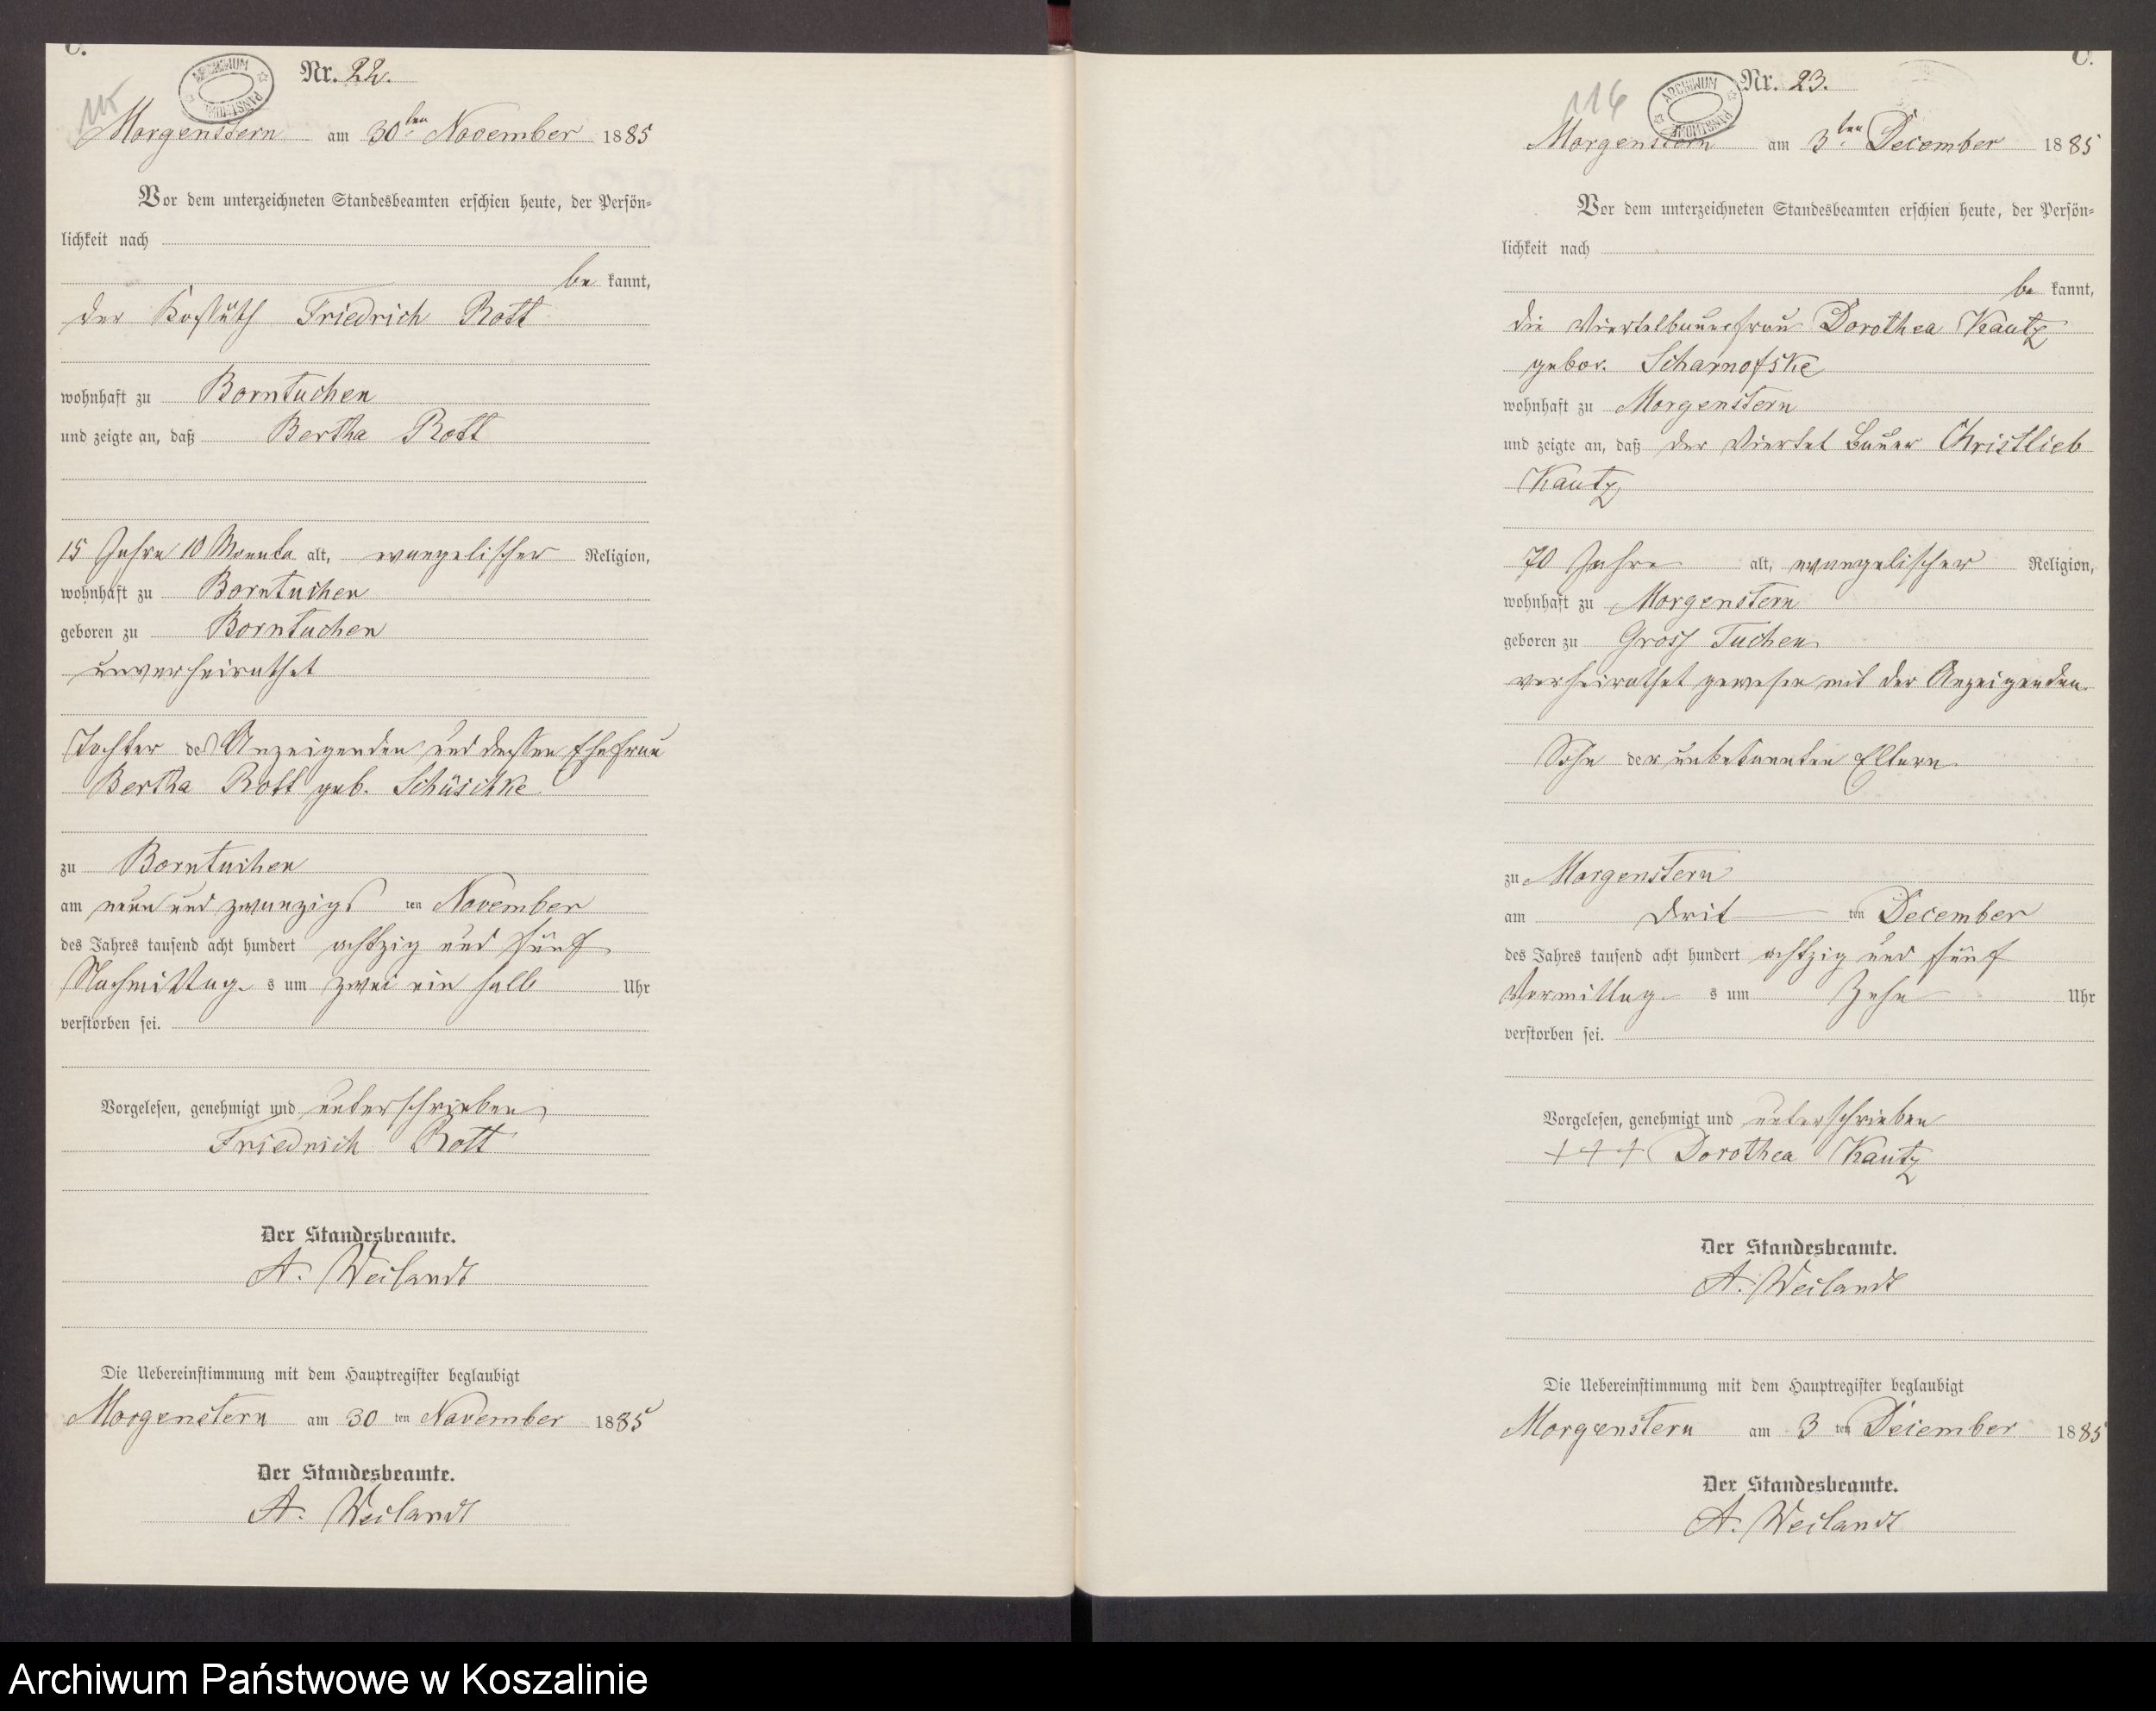 C.
115
ARCHIWUM PAŃSTWOWE
Nr. 22.
Morgenstern am 30ten November 1885
Vor dem unterzeichneten Standesbeamten erschien heute, der Persön-
lichkeit nach
be kannt,
der Kossäth Friedrich Rott
wohnhaft zu Borntuchen
und zeigte an, daß Bertha Rott
15 Jahre 10 Monate alt, evangelischer Religion,
wohnhaft zu Borntuchen
geboren zu Borntuchen
unverheirathet
Tochter des Anzeigenden und dessen Ehefrau
Bertha Rott geb. Schüschke
zu Borntuchen
am neun und zwanzigs ten November
des Jahres tausend acht hundert achtzig und fünf
Nachmittag s um zwei ein halb Uhr
verstorben sei.
Vorgelesen, genehmigt und unterschrieben
Friedrich Rott
Der Standesbeamte.
A. Weilandt
Die Uebereinstimmung mit dem Hauptregister beglaubigt
Morgenstern am 30 ten November 1885
Der Standesbeamte.
A. Weilandt
C.
116
ARCHIWUM PAŃSTWOWE
Nr. 23.
Morgenstern am 3ten December 1885
Vor dem unterzeichneten Standesbeamten erschien heute, der Persön-
lichkeit nach
be kannt,
die Viertelbauerfrau Dorothea Kautz
gebor. Scharnofske
wohnhaft zu Morgenstern
und zeigte an, daß der Viertel Bauer Christlieb
Kautz
70 Jahre alt, evangelischer Religion,
wohnhaft zu Morgenstern
geboren zu Gross Tuchen
verheirathet gewesen mit der Anzeigenden.
Sohn der unbekannten Eltern
zu Morgenstern
am drit ten December
des Jahres tausend acht hundert achtzig und fünf
Vormittag s um Zehn Uhr
verstorben sei.
Vorgelesen, genehmigt und unterschrieben
+++ Dorothea Kautz
Der Standesbeamte.
A. Weilandt
Die Uebereinstimmung mit dem Hauptregister beglaubigt
Morgenstern am 3 ten December 1885
Der Standesbeamte.
A. Weilandt
Archiwum Państwowe w Koszalinie